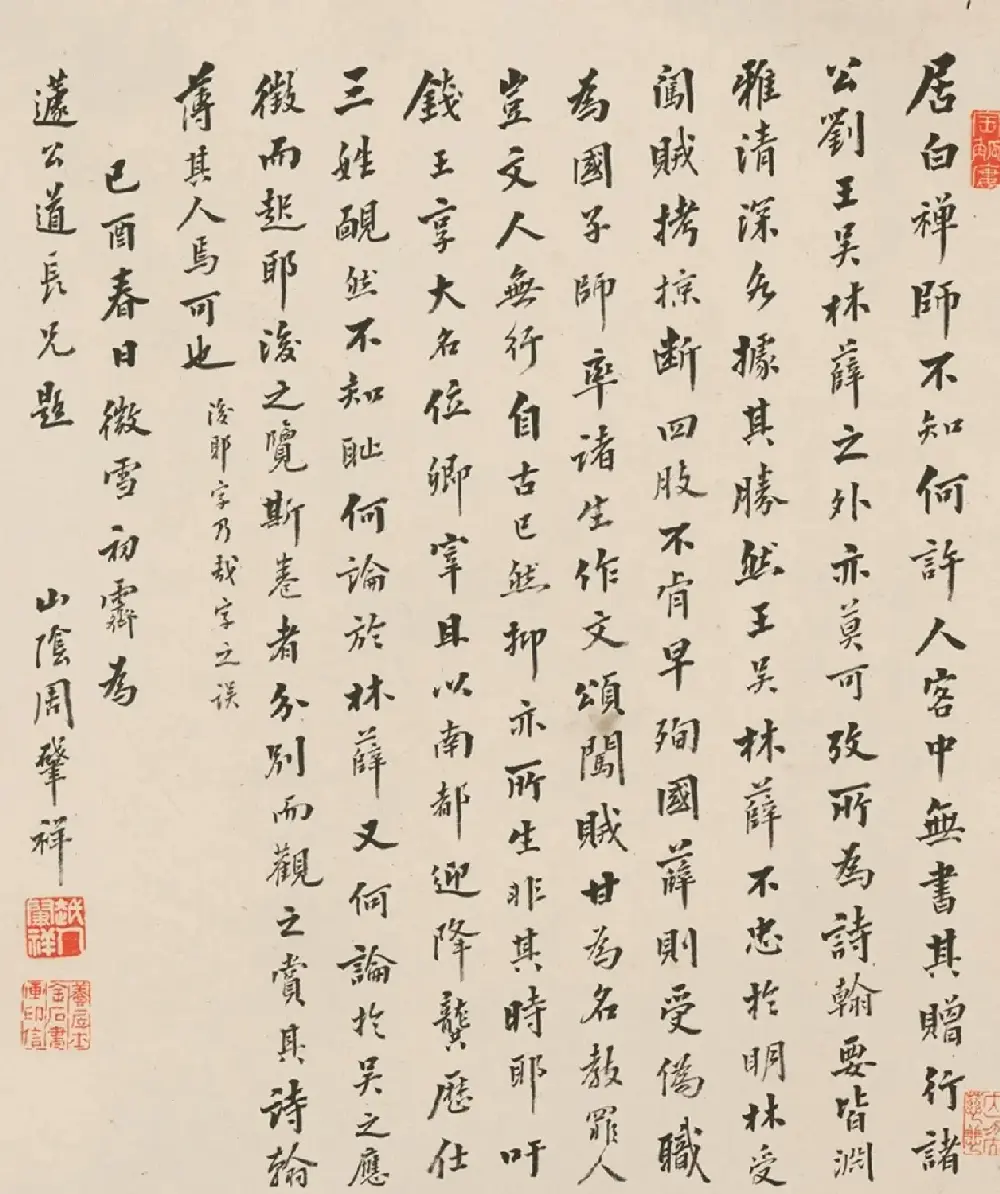 居白禅師不知何許人客中無書其贈行諸
公劉王吴林薛之外亦莫可攷所為詩翰要皆淵
雅清深各據其勝然王吴林薛不忠扵明林受
闖賊拷掠断四肢不肯早殉國薛則受偽職
為國子師率諸生作文頌闖賊甘為名教罪人
豈文人無行自古已然抑亦所生非其時耶吁
錢王享大名位卿宰且以南都迎降龔歷仕
三姓靦然不知耻何論於林薛又何論扵吴之應
徵而起耶後之覽斯卷者分別而觀之賞其詩翰
薄其人焉可也
後耶字乃哉字之误
己酉春日微雪初霽為
蘧公道長兄題
山陰周肇祥